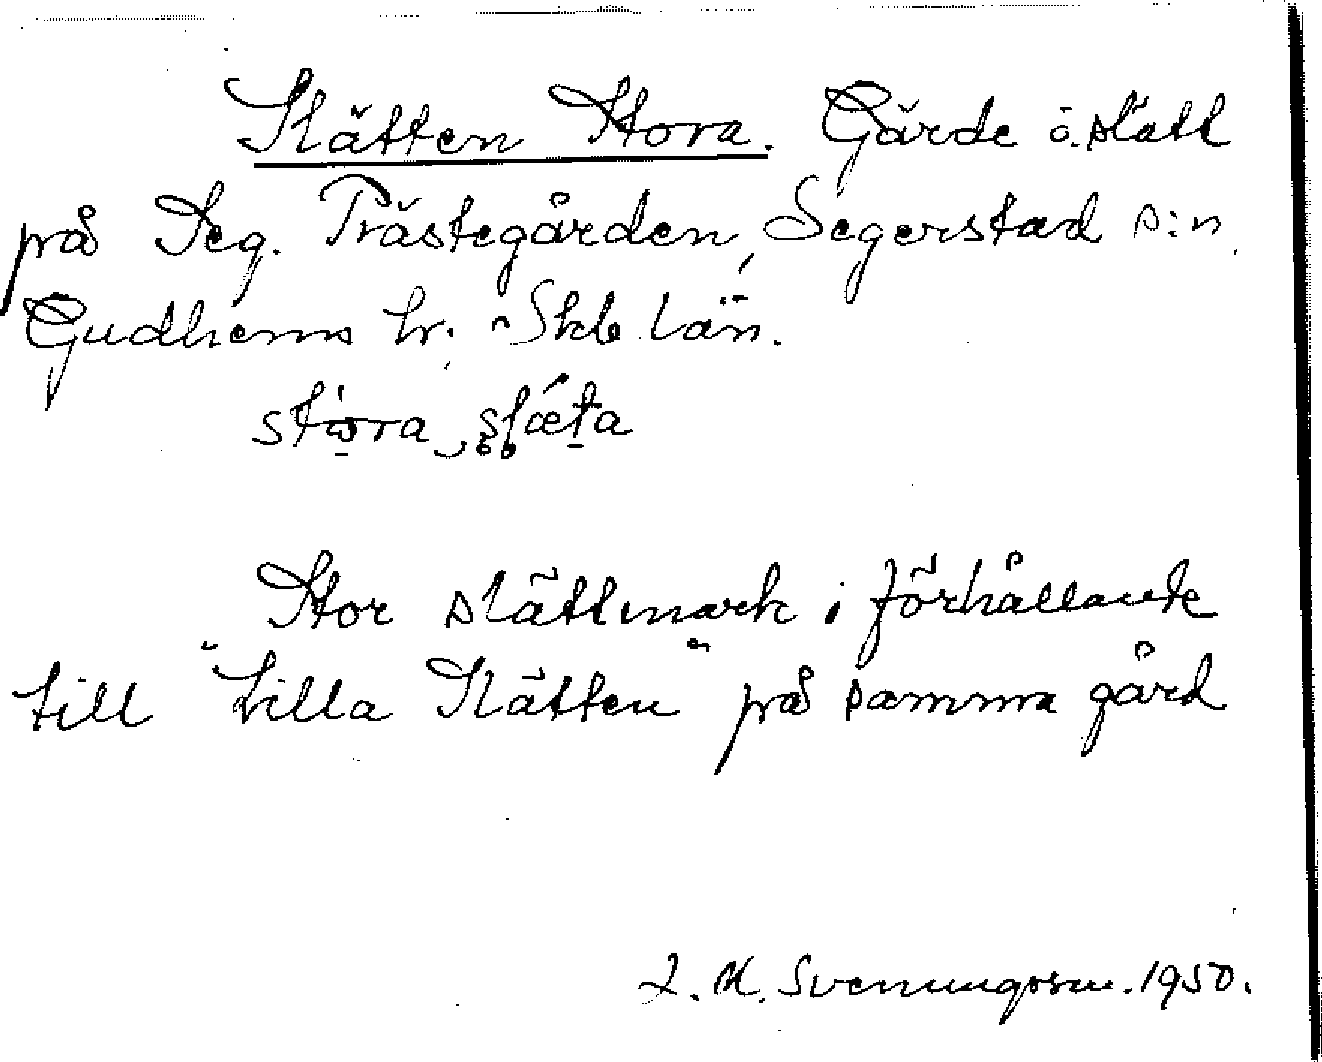 Slätten Stora. Gärde o. slätt
på Seg. Prästegården, Segerstad s:n
Gudhems hr. Skb. län.
stora släta
Stor slättmark i förhållande
till "Lilla Slätten" på samma gård
Svenungsson. 1950.